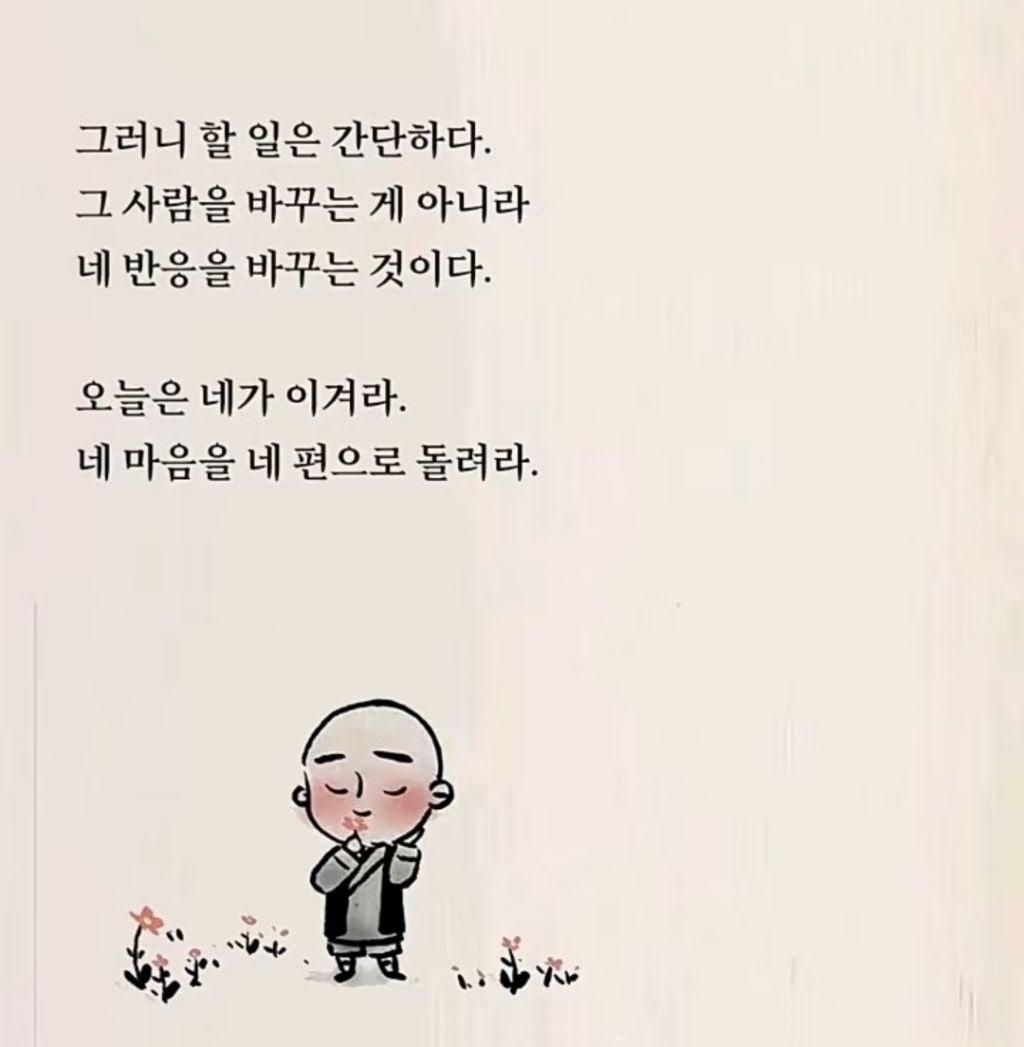 그러니 할 일은 간단하다.
그 사람을 바꾸는 게 아니라
네 반응을 바꾸는 것이다.
오늘은 네가 이겨라.
네 마음을 네 편으로 돌려라.